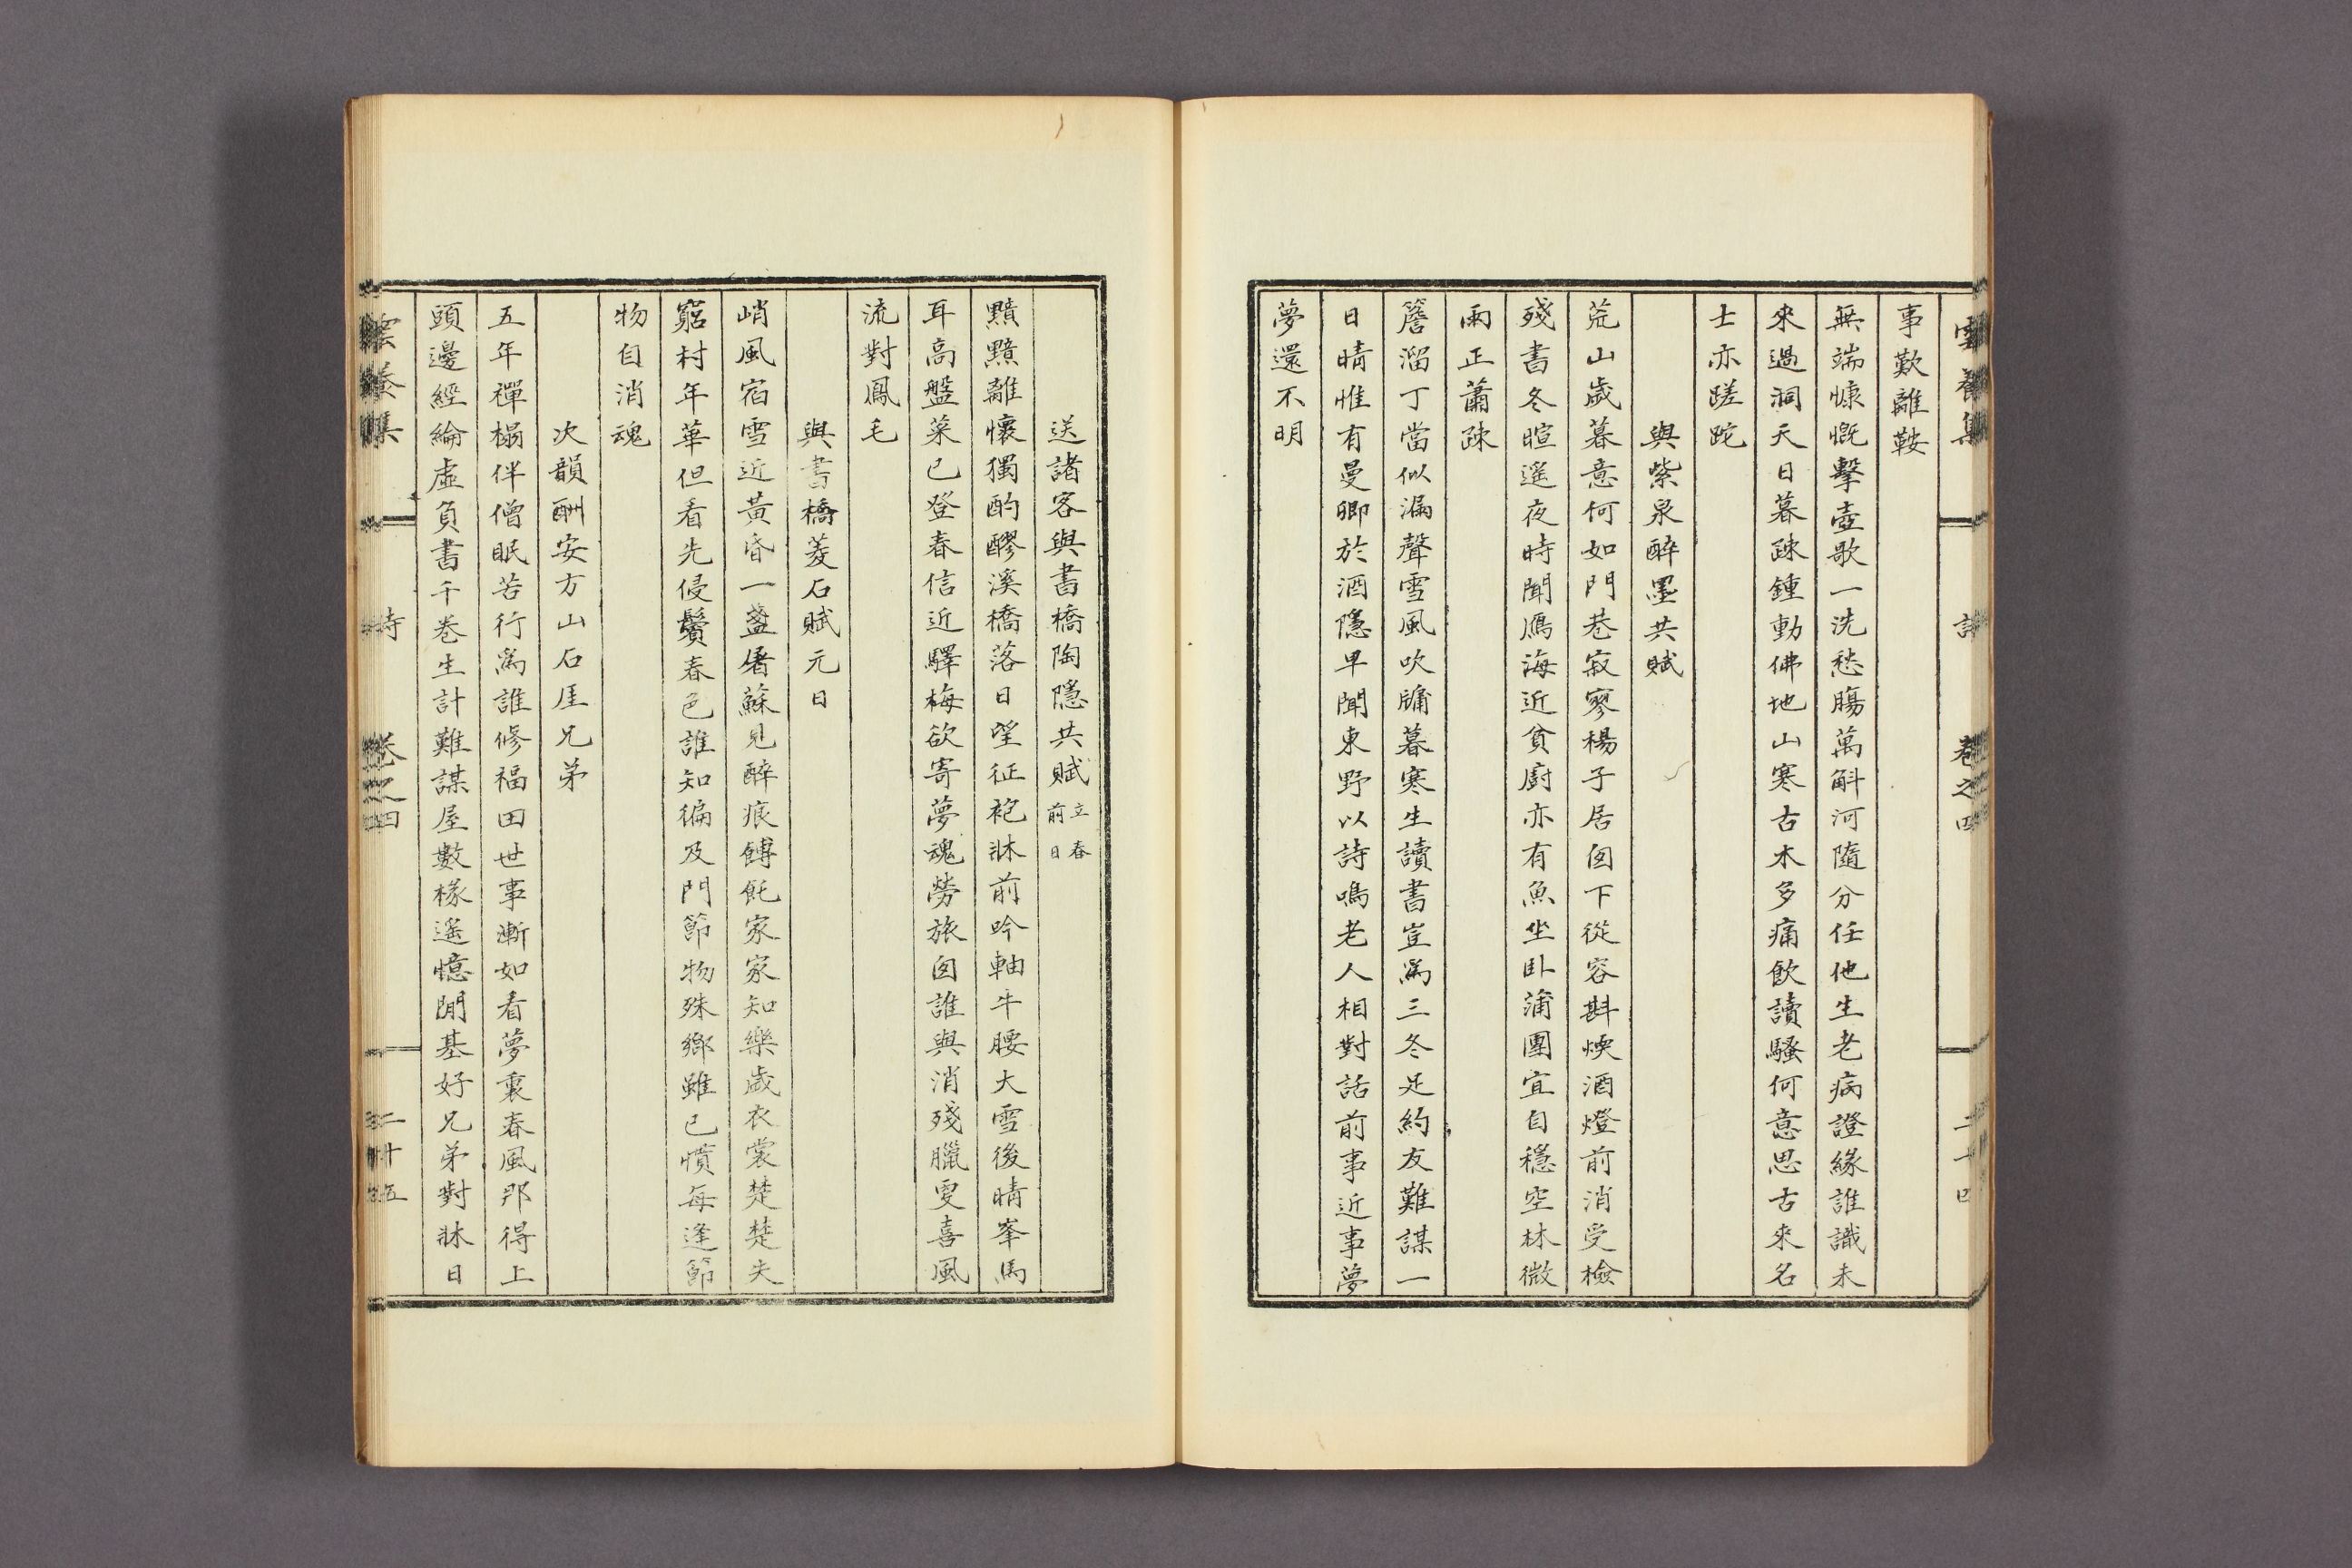 事歎離鞍
無端慷慨擊壺歌一洗愁膓萬斛河隨分任他生老病證緣誰識未
來過洞天日暮踈鍾動佛地山寒古木多痛飮讀騷何意思古來名
士亦蹉跎
與紫泉醉墨共賦
荒山歲暮意何如門巷寂寥楊子居囱下從容斟煗酒燈前消受檢
殘書冬暄遥夜時聞鴈海近貧廚亦有魚坐臥蒲團宜自穩空林微
雨正蕭疎
簷溜丁當似漏聲雪風吹牖暮寒生讀書豈爲三冬足約友難謀一
日晴惟有曼卿於酒隱早聞東野以詩鳴老人相對話前事近事夢
夢還不明
送諸客與書橋陶隱共賦立春前日
黯黯離懷獨酌醪溪橋落日望征袍牀前吟軸牛腰大雪後晴峯馬
耳高盤菜已登春信近驛梅欲寄夢魂勞旅囱誰與消殘臘叟喜風
流對鳳毛
與書橋菱石賦元日
峭風宿雪近黃昏一盞屠蘇見醉痕餺飥家家知樂歲衣裳楚楚夫
窮村年華但看先侵鬢春色誰知徧及門節物殊鄉雖已慣每逢節
物自消魂
次韻酬安方山石厓兄弟
五年禪榻伴僧眠苦行爲誰修福田世事漸如看夢裏春風那得上
頭邊經綸虛負書千巻生計難謀屋數椽遥憶閒基好兄弟對牀日
雲養集
詩
卷之四
二十五